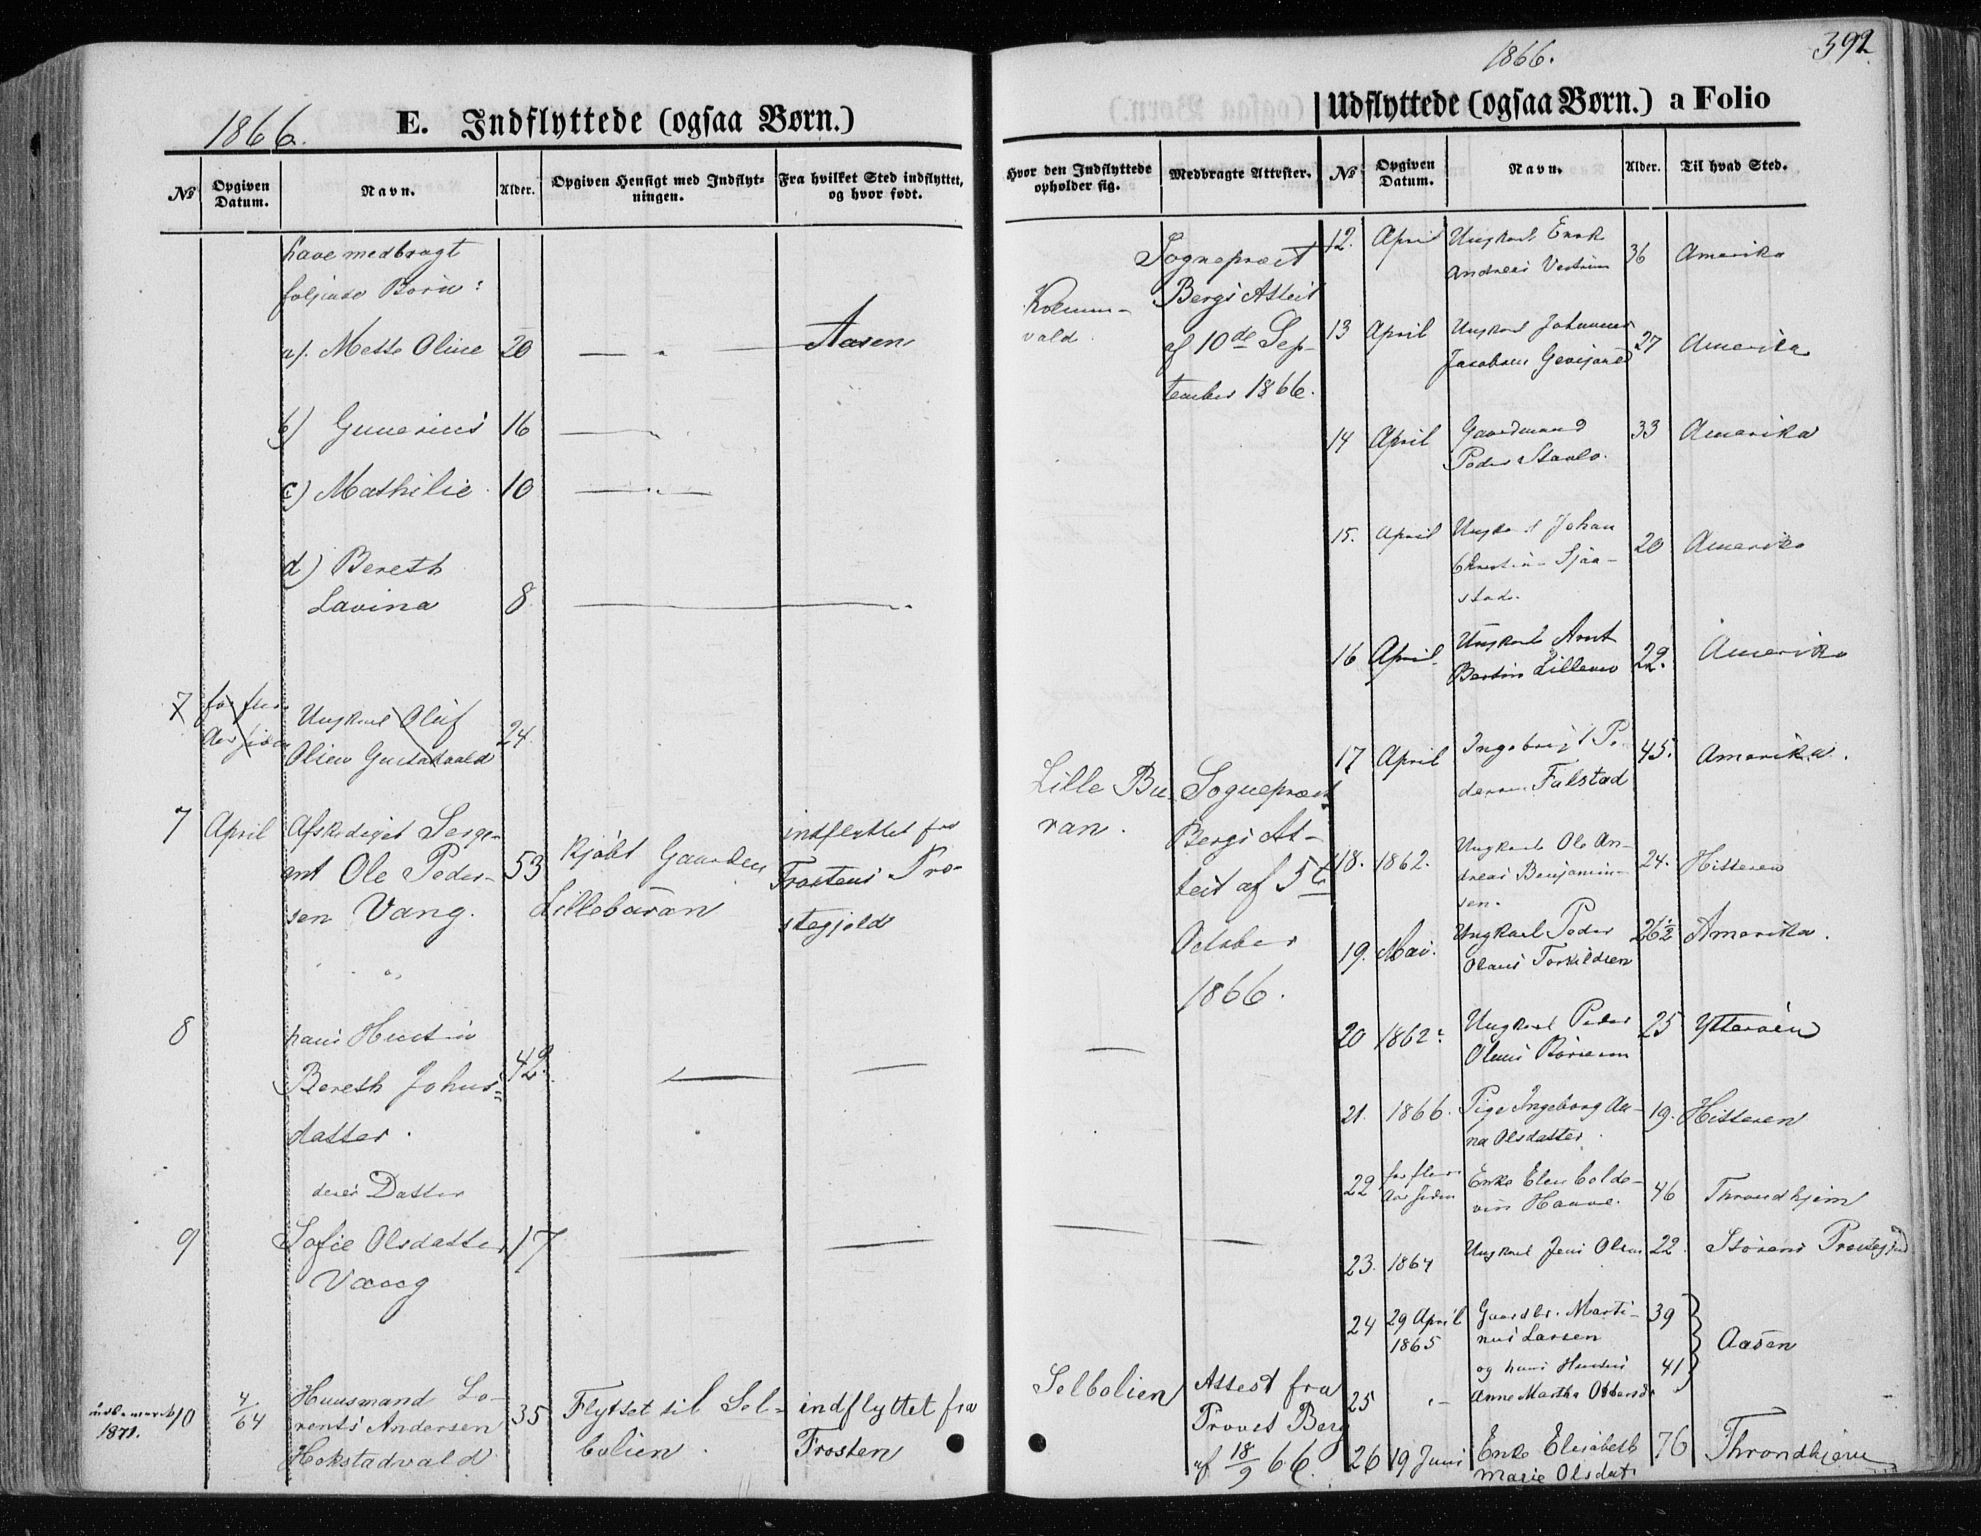 392
1866.
1866.
E. Indflyttede (ogsaa Børn.)
Udflyttede (ogsaa Børn.) a Folio
No
Opgiven Datum.
Navn.
Alder.
Opgiven Hensigt med Indflyt-
ningen.
Fra hvilket Sted indflyttet,
og hvor født.
Hvor den Indflyttede
opholder sig.
Medbragte Attester.
No
Opgiven Datum.
Navn.
Alder.
Til hvad Sted.
have medbragt
følgende Børn:
a). Mette Oline 20 Aasen
b) Gunerius 16
c) Mathilie 10
d) Bereth
Lavina 8
Sogneprest
Bergs Attest
af 10de Sep-
tember 1866.
7 Ungkarl Oluf
Olsen 24
7 April Afskediget Serge-
ant Ole Peder-
sen Vang. 53
kjøbt Gaarden
Lillebüran
indflyttet fra
Frostens Pre-
stegjeld
Lille Bu-
ran.
Sogneprest
Bergs At-
test af 5te
October
1866.
8 hans Hustru
Bereth Johns-
datter. 42.
deres Datter
9 Sofie Olsdatter 17
Vang
1871.
10 4/64 Huusmand Lo-
rents Andersen
Hokstadvald 35
Flyttet til Sel-
bolien.
indflyttet fra
Frosten
Selbolien
Attest fra
Provst Berg
af 18/9 66.
12. April Ungkarl
Andreas 36 Amerika
13 April Ungkarl Johannes
Jacobsen 27 Amerika
14 April Gaardmand
Peder 33 Amerika
15. April Ungkarl Johan
Christian Sjaa-
stad. 20 Amerika
16 April Ungkarl Arnt
Lillemo 22. Amerika
17 April Ingeborg Pe-
Falstad 45. Amerika.
18. 1862. Ungkarl Ole An-
dreas Benjamin-
sen. 24. Hitteren
19. Mai. Ungkarl Peder
Olaus Torkildsen 26½ Amerika.
20 1862. Ungkarl Peder
Olaus 25 Ytterøen
21. 1866. Pige Ingeborg An-
na Olsdatter. 19. Hitteren
22 for flere
Aar siden Enke Elen Colde-
vin 46 Throndhjem
23. 1864 Ungkarl Jens Olsen 22. Størens Prestegjeld
24 29 April
1865 Gaardbr. Marti-
nus Larsen 39
og hans Hustru 41 Aasen
25 Anne Martha
26 19 Juni Enke Elisabeth
Marie Olsdatr 76 Throndhjem